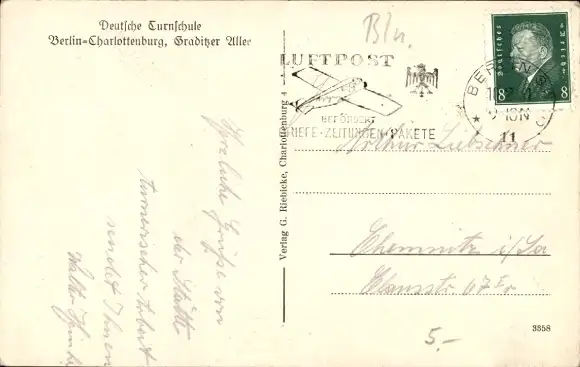 Deutsche Turnschule
Berlin=Charlottenburg, Graditzer Allee
Frohe Grüße von
der Stätte
turnerischer Arbeit
sendet Ihnen
Walter
Verlag G. Riebicke, Charlottenburg 4
Bln.
LUFTPOST
BEFÖRDERT
BRIEFE · ZEITUNGEN · PAKETE
Deutsches Reich
8 8
BERLIN
11
Arthur Liebschner
Chemnitz i/Sa
Clausstr. 67 I r
5.-
3358